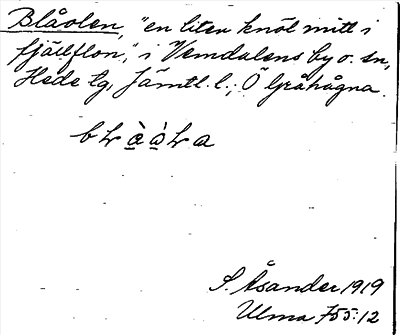 Blåolen, "en liten knöl mitt i
fjällflon", i Vemdalens by o. sn,
Hede tg, Jämtl. l.; Ö Gråhågna.
S. Åsander 1919
Ulma 755:12